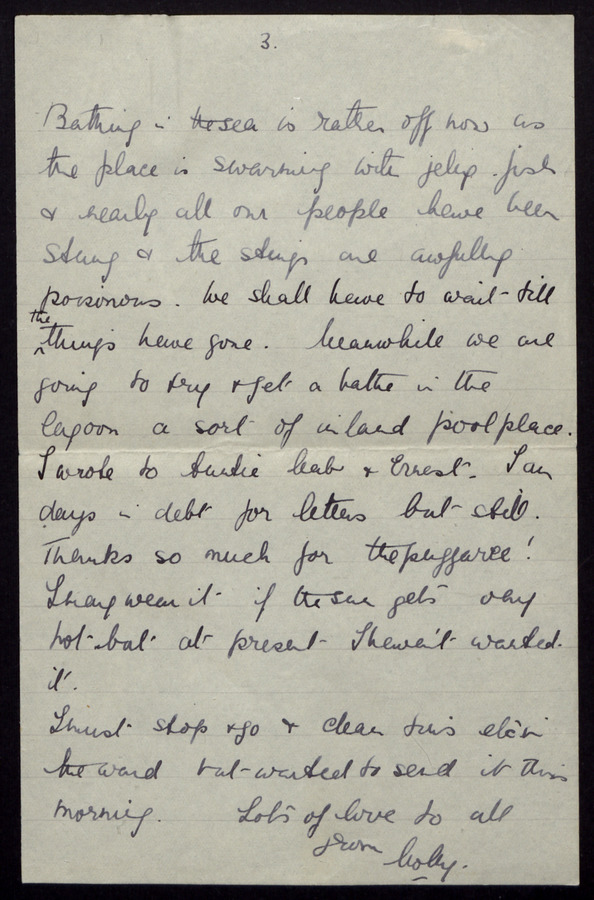 3.
Bathing in the sea is rather off now as
the place is swarming with jelly-fish
& nearly all our people have been
stung & the stings are awfully
poisonous. We shall have to wait till
the
things have gone. Meanwhile we are
going to try & get a bathe in the
lagoon a sort of inland pool place.
I wrote to Auntie & Ernest. I am
days in debt for letters but still.
Thanks so much for the puggaree!
I may wear it if the sun gets very
hot but at present I haven't wanted
it.
I must stop & go & clean tins etc in
the ward but wanted to send it this
morning. Lots of love to all
from